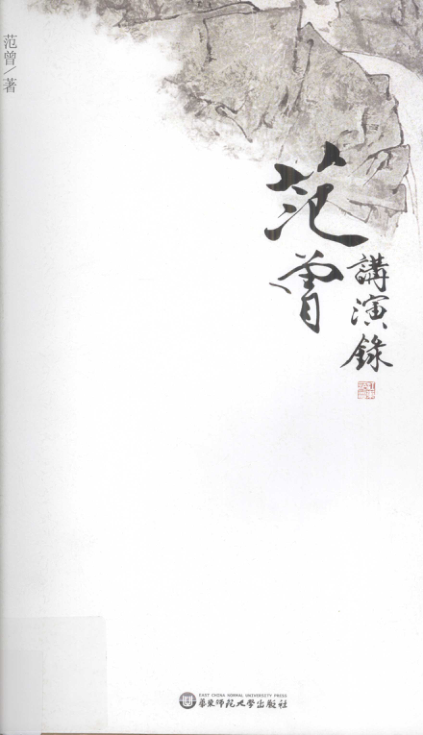 范曾/著
范曾
講演錄
EAST CHINA NORMAL UNIVERSITY PRESS
華東师范大学出版社